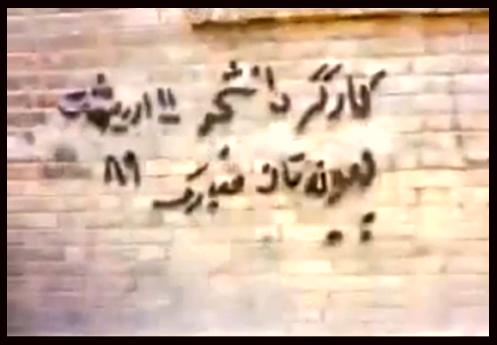 کارگر دانشجو ۱۱ اردیبهشت
پیوندتان مبارک ۸۹